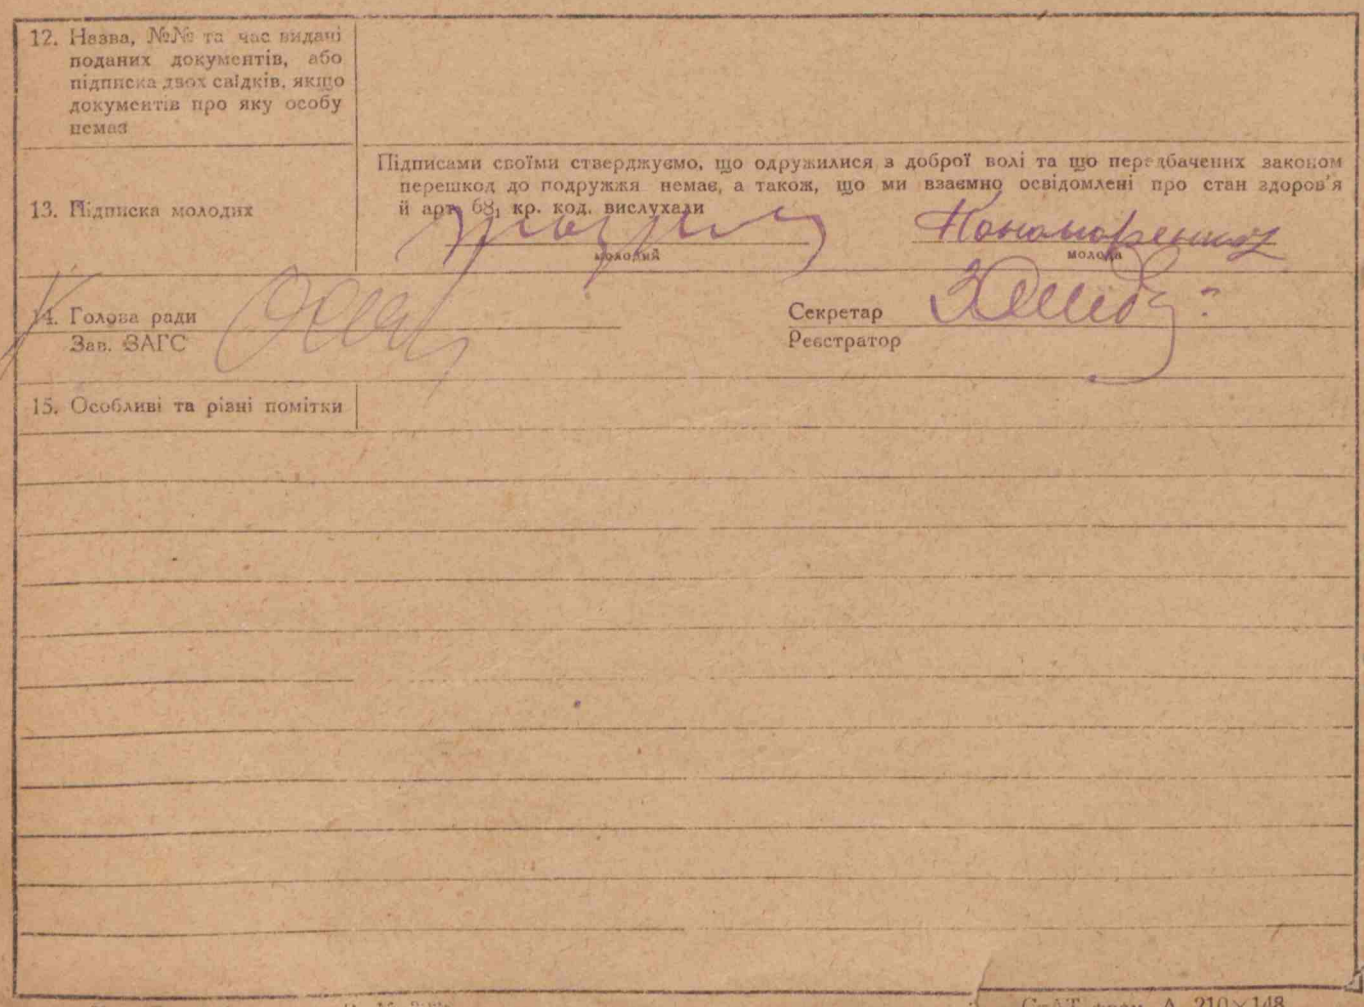 12. Назва, №№ та час видачі
поданих документів, або
підписка двох свідків, якщо
документів про яку особу
немає
Підписами своїми стверджуємо, що одружилися з доброї волі та що передбачених законом
перешкод до подружжя немає, а також, що ми взаємно освідомлені про стан здоров'я
13. Підписка молодих
й арт. 68₁ кр. код. вислухали
Пономаренко
молодий молода
14. Голова ради Секретар
Зав. ЗАГС Реєстратор
15. Особливі та різні помітки
А 210×148